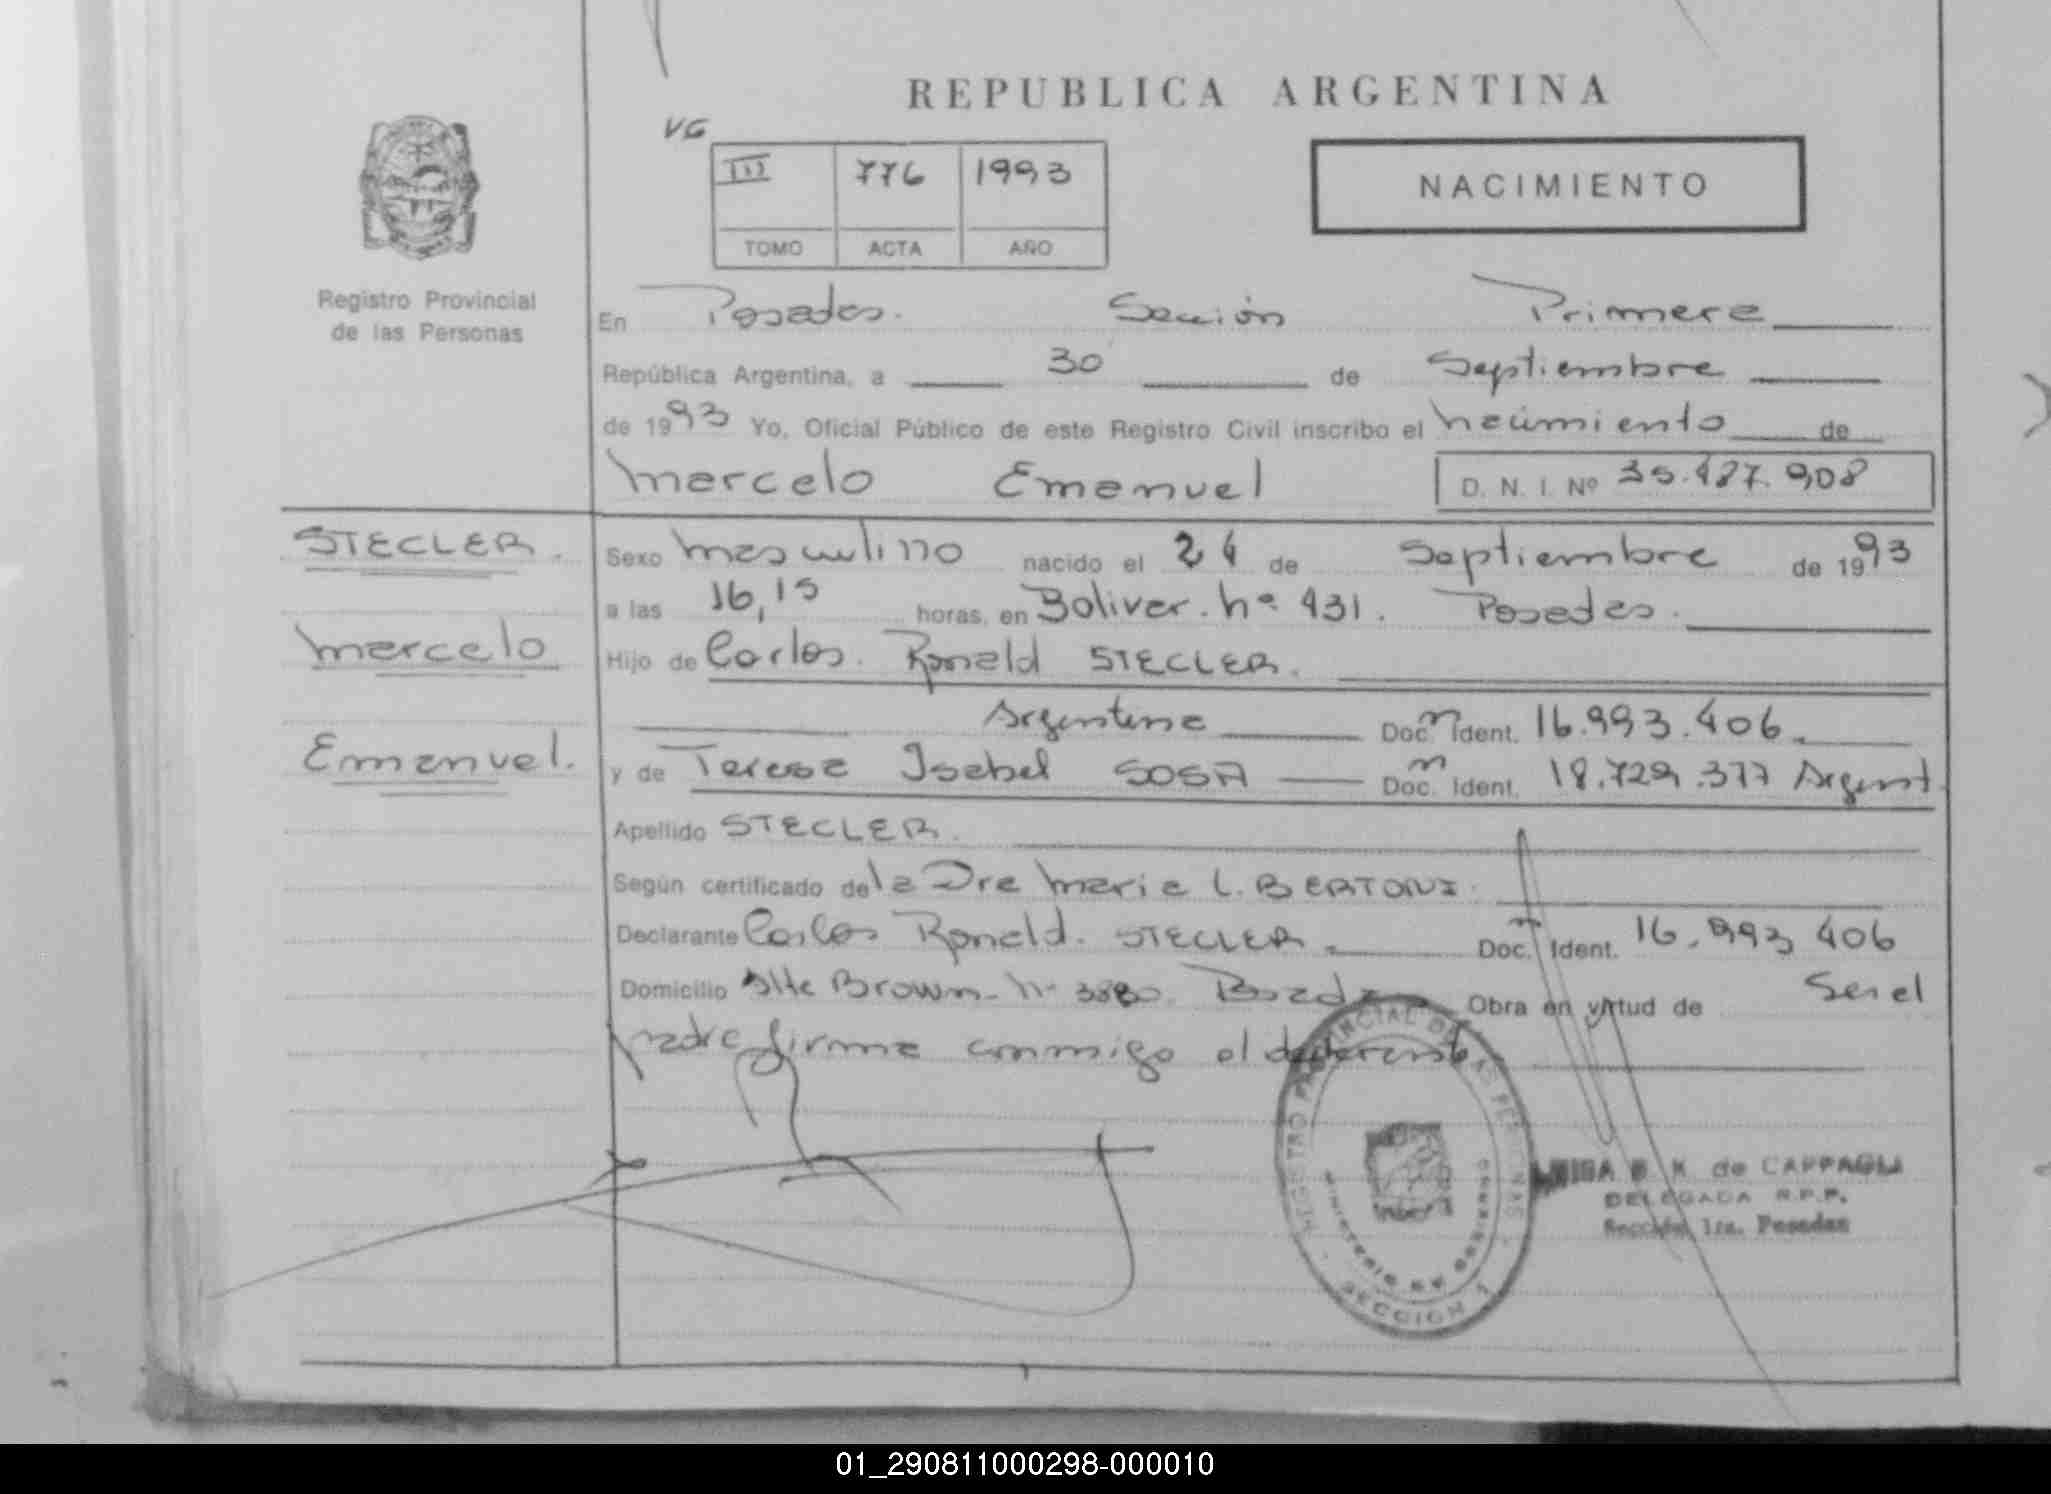 REPUBLICA ARGENTINA
VG
III 776 1993
TOMO ACTA AÑO
NACIMIENTO
Registro Provincial
de las Personas
En Posadas. Sección Primera
República Argentina, a 30 de Septiembre
de 1993 Yo, Oficial Público de este Registro Civil inscribo el nacimiento de
Marcelo Emanuel D. N. I. Nº 35.487.908
STECLER.
Sexo masculino nacido el 24 de Septiembre de 1993
a las 16,15 horas, en Bolivar. nº 431. Posadas.
Marcelo
Hijo de Carlos. Ronald STECLER.
Argentina Doc. Ident. 16.993.406
Emanuel.
y de Teresa Isabel SOSA Doc. Ident. 18.729.377 Argent
Apellido STECLER.
Según certificado de la Dra Maria L. BERTONI.
Declarante Carlos Ronald. STECLER. Doc. Ident. 16.993.406
Domicilio Alte Brown. nº 3880. Posadas Obra en virtud de Ser el
padre firma conmigo el declarante
REGISTRO PROVINCIAL DE LAS PERSONAS
MINISTERIO DE GOBIERNO
SECCION 1
B. K. de CAPPAGLI
DELEGADA R.P.P.
Sección 1ra. Posadas
01_290811000298-000010